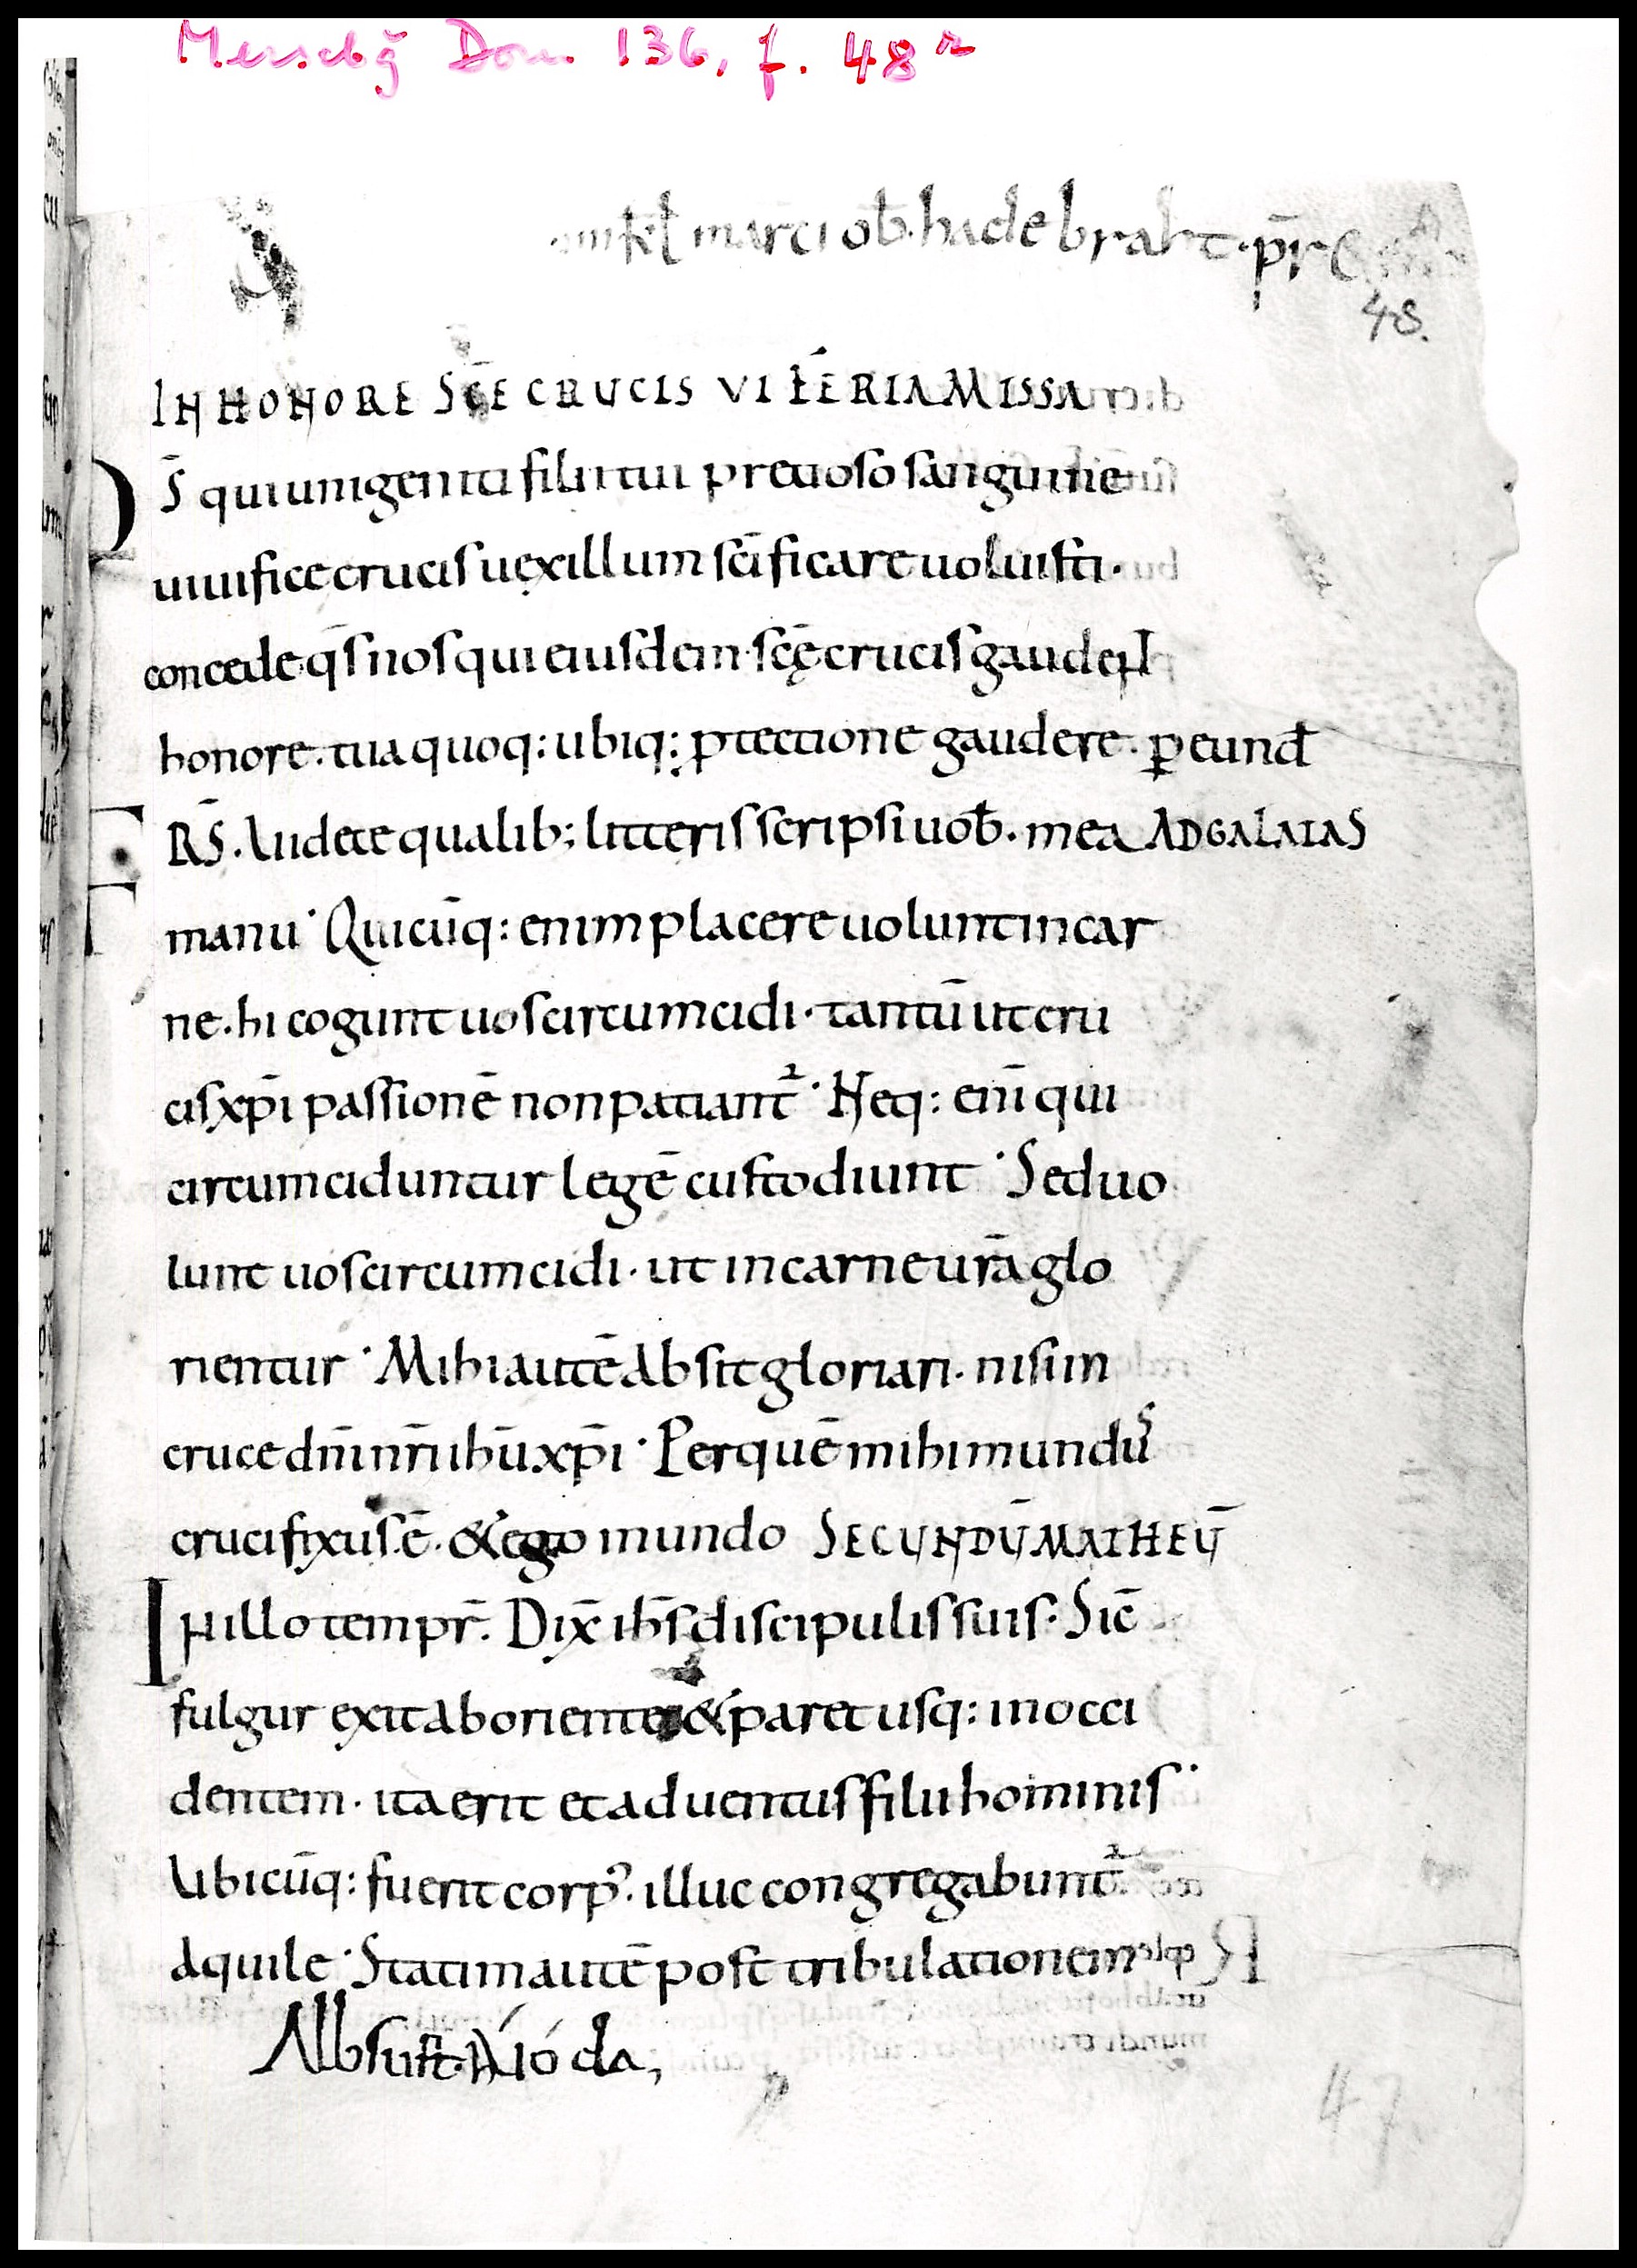 Merseb̄g Dom 136, f. 48r
kl̄ marci ob̄. hadebraht. pr̄
48.
IN HONORE SC̄E CRUCIS VI FERIA MISSA
DS̄ qui unigeniti filii tui pretioso sanguine
uiuifice crucis uexillum sc̄ificare uoluisti.
concede qs̄ nos qui eiusdem sc̄ę crucis gaudeN
honore. tua quoq: ubiq: ptectione gaudere. p eund̄
FRS̄. Uidete qualib; litteris scripsi uob̄. mea AD GALATAS
manu. Quicūq: enim placere uolunt in car
ne. hi cogunt uos circumcidi. tantū ut cru
cis xp̄i passionē non patiant². Neq: enī qui
circumciduntur legē custodiunt. Sed uo
lunt uos circumcidi. ut in carne ur̄a glo
rientur. Mihi autē absit gloriari. nisi in
cruce dn̄i nr̄i ih̄u xp̄i. Per quē mihi mundus
crucifixus ē. & ego mundo SECUNDŪ MATHEŪ
IN illo tempr̄. Dix̄ ih̄s discipulis suis. Sic̄
fulgur exit ab oriente & paret usq: in occi
dentem. ita erit et aduentus filii hominis.
Ubicūq: fuerit corp⁹. illuc congregabunt²
aquile. Statim autē post tribulationem
47